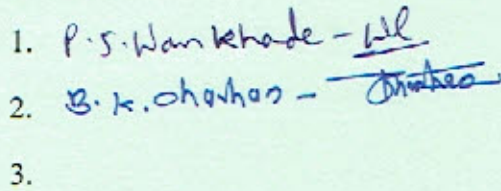 1. P.S. Wankhade -
2. B.K. Chavhan -
3.